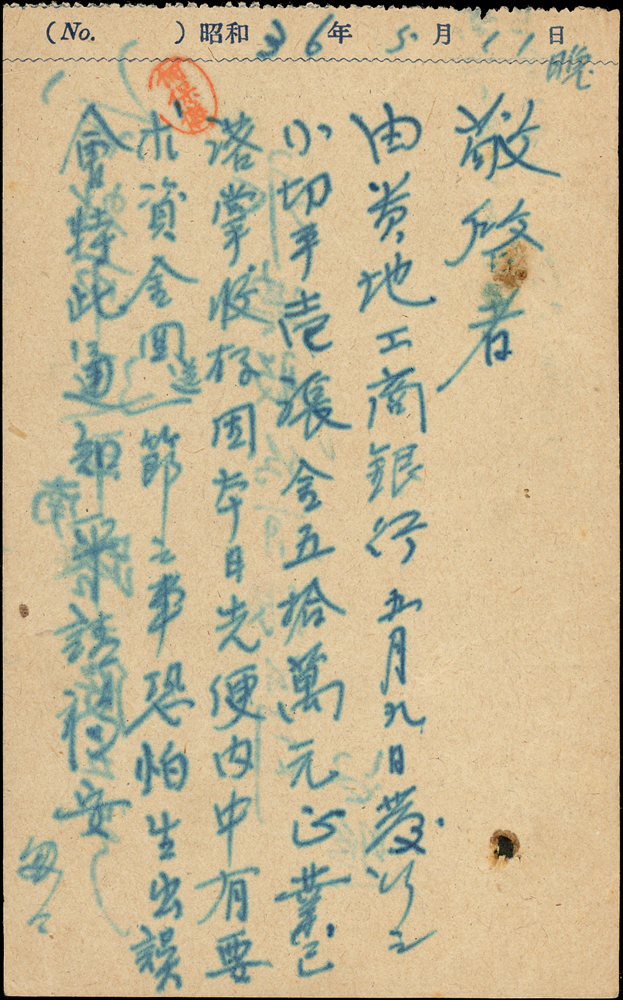 (No. ) 昭和 36年 5月 11日
晚
敬啓者
由貴地工商銀行五月九日發行之
小切手壱張金五拾萬元正業已
落掌收存因本日先便内中有要
求資金回送節之事恐怕生出誤
會特此通知
南
并請
安
匆々